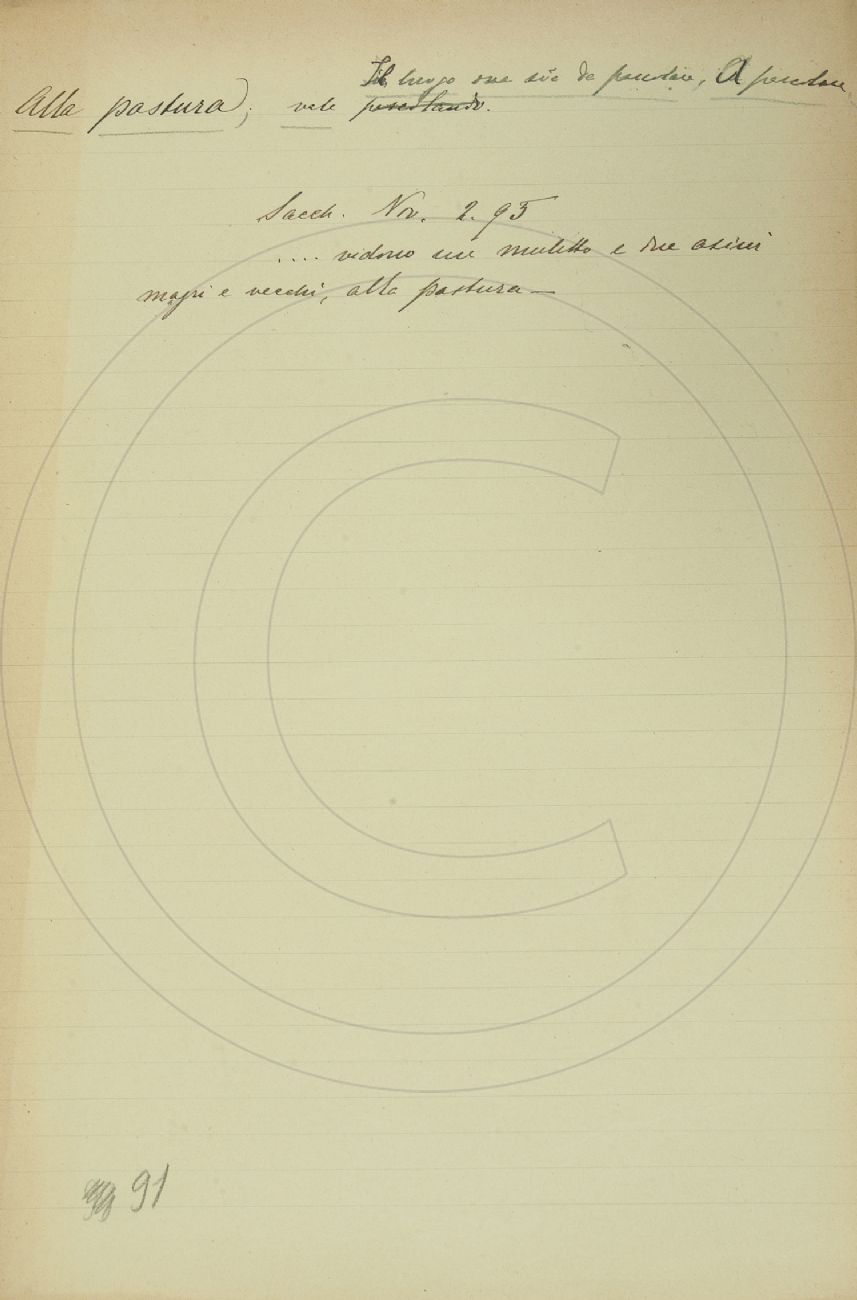 Il luogo ove sia da pascolare, A pascolare
Alla pastura); vale pascolando.
Sacch. Nov. 2. 95
.... vidono un muletto e due asini
magri e vecchi, alla pastura—
91